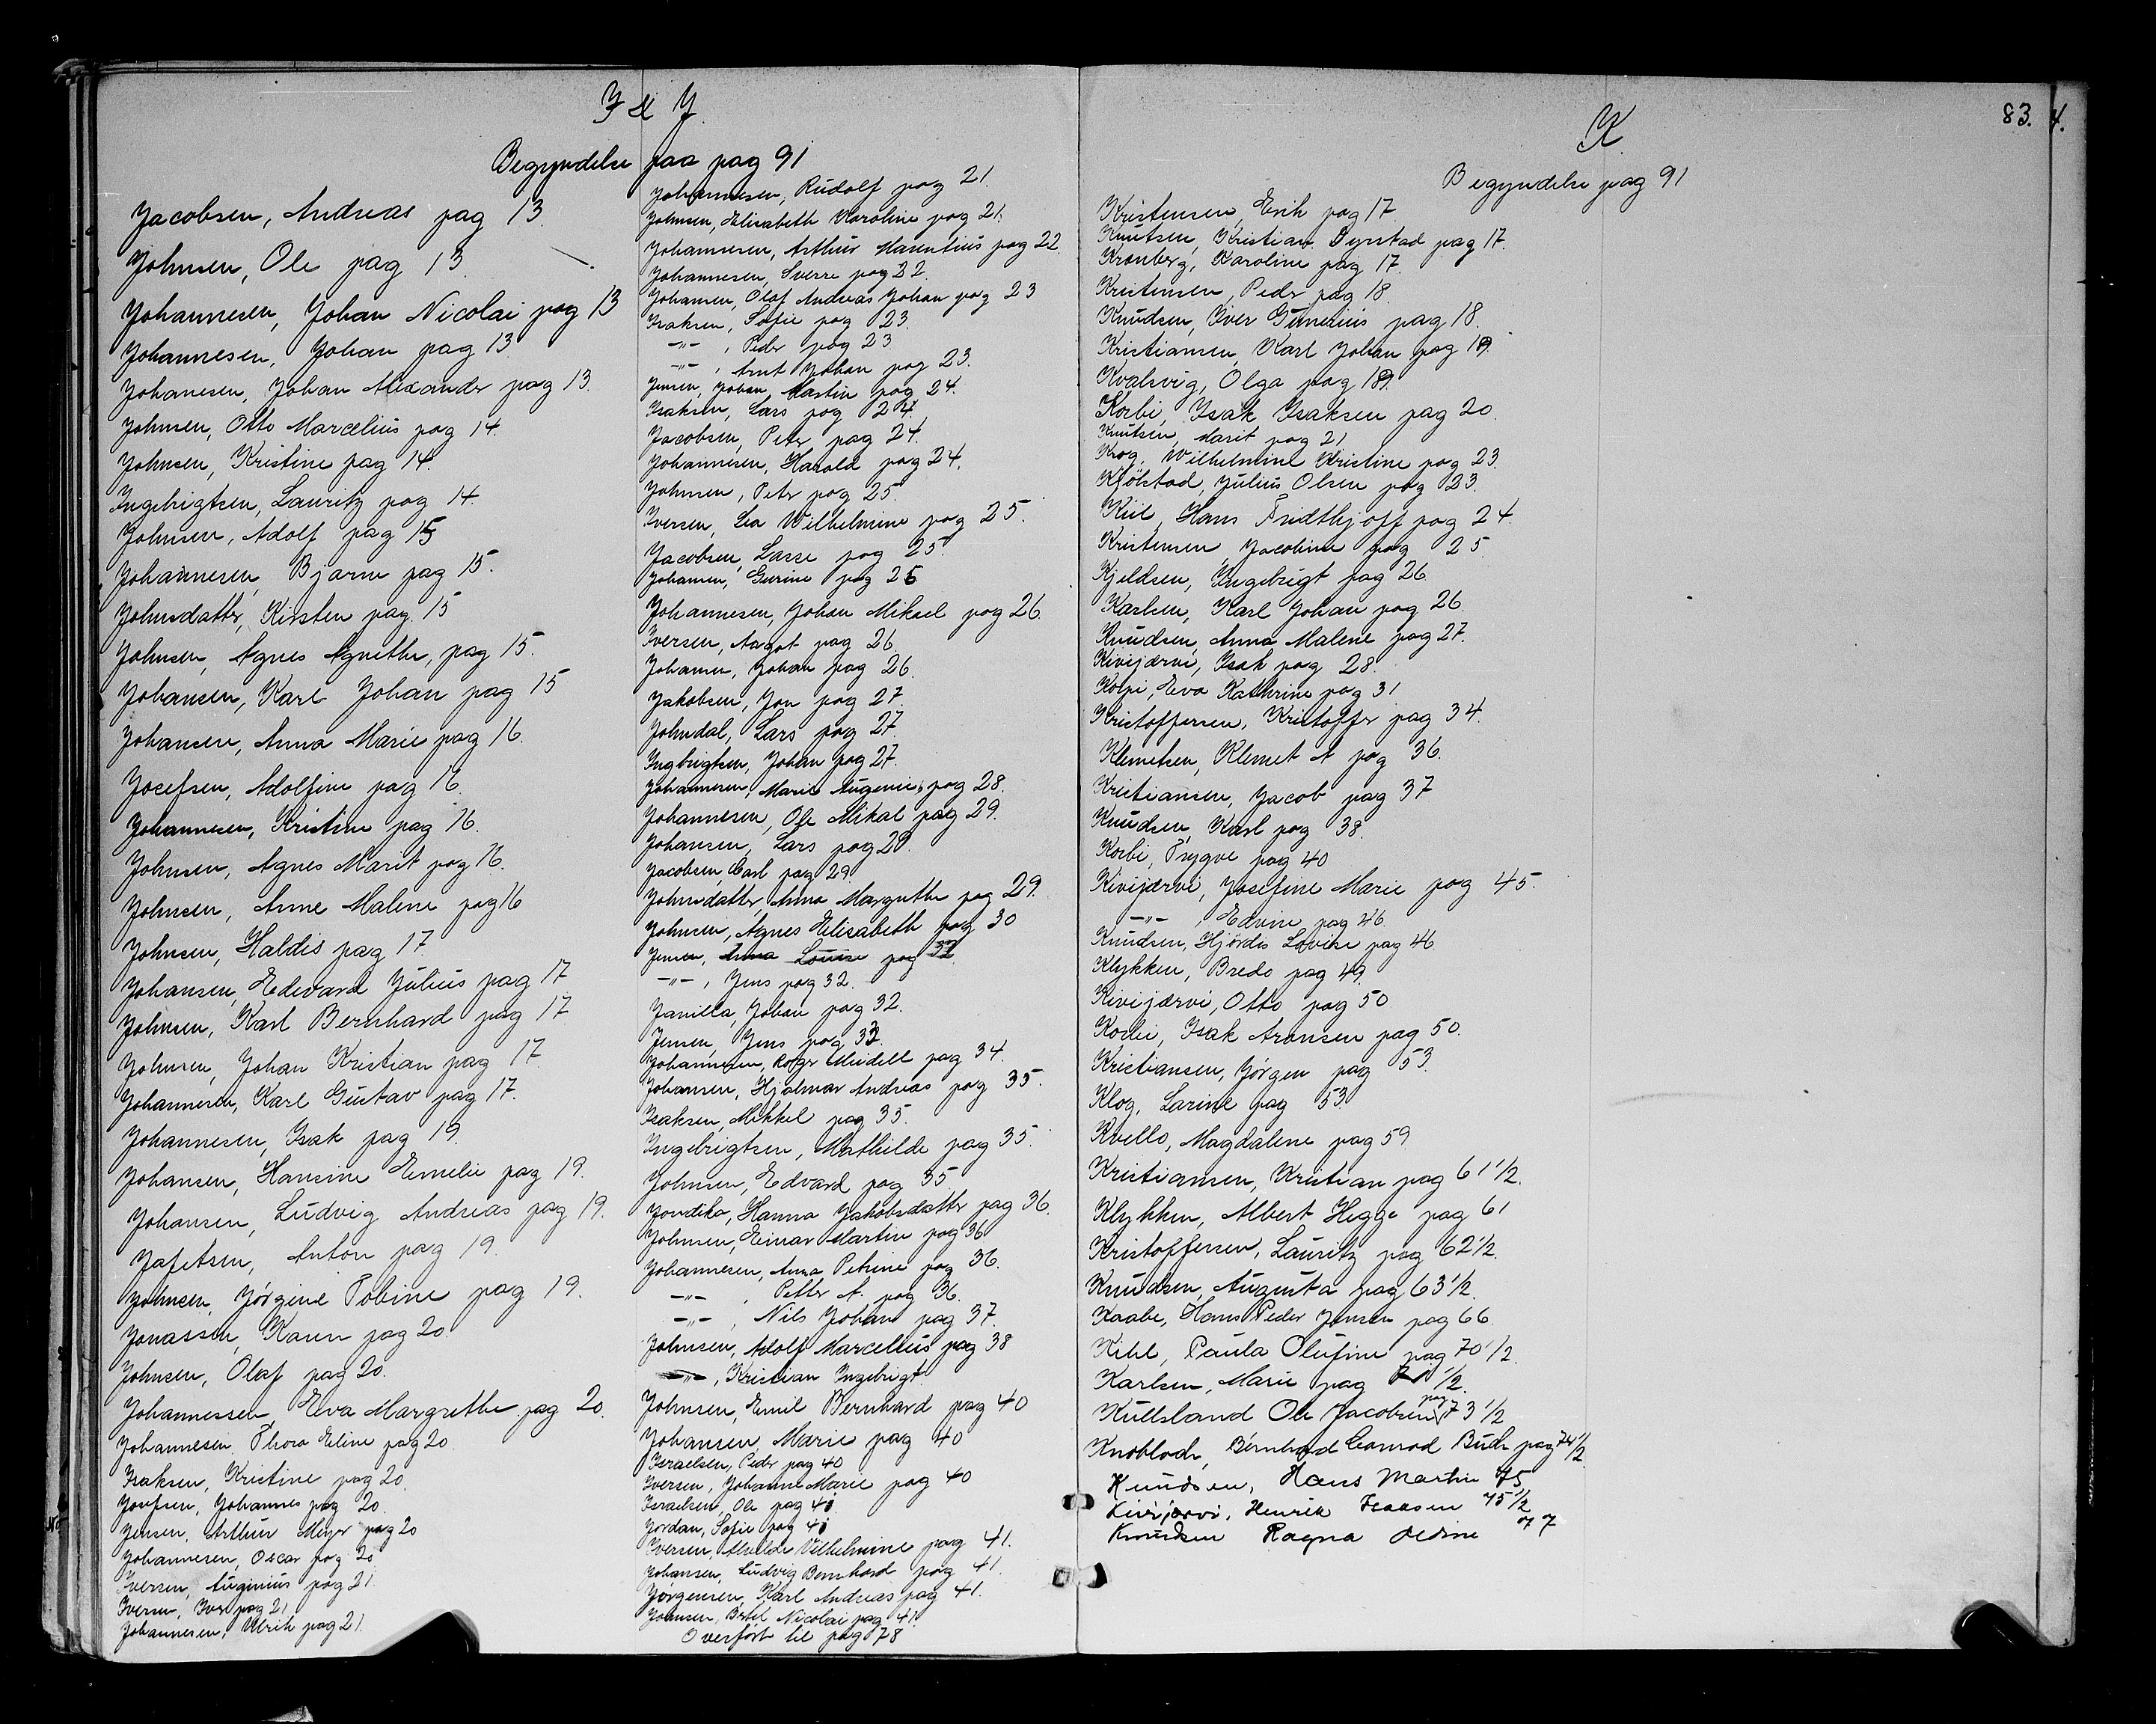 I & J.
Begyndelse paa pag 91
Jacobsen, Andreas pag 13.
Johnsen, Ole pag 13.
Johannesen, Johan Nicolai pag 13
Johannesen, Johan pag 13
Johanesen, Johan Alexander pag 13.
Johnsen, Otto Marcelius pag 14.
Johnsen, Kristine pag 14.
Ingebrigtsen, Lauritz pag 14.
Johnsen, Adolf pag 15
Johannesen, Bjarne pag 15.
Johnsdatter, Kirsten pag 15
Johnsen, Agnes Agnethe, pag 15.
Johansen, Karl Johan pag 15
Johansen, Anna Marie pag 16.
Josefsen, Adolfine pag 16.
Johannesen, Kristine pag 16.
Johnsen, Agnes Marit pag 16.
Johnsen, Anne Malene pag 16
Johnsen, Haldis pag 17.
Johansen, Edevard Julius pag 17
Johnsen, Karl Bernhard pag 17
Johnsen, Johan Kristian pag 17.
Johannesen, Karl Gustav pag 17.
Johannesen, Isak pag 19.
Johansen, Hansine Emelie pag 19.
Johansen, Ludvig Andreas pag 19.
Jafetsen, Anton pag 19.
Johnsen, Jørgine Tobine pag 19.
Jonassen, Karen pag 20.
Johnsen, Olaf pag 20.
Johannessen, Eva Margrethe pag 20.
Johannesen, Thora Eline pag 20
Isaksen, Kristine pag 20
Josefsen, Johannes pag 20.
Jensen, Arthur Meyer pag 20
Johannesen, Oscar pag 20
Iversen, Auginius pag 21.
Iversen, Iver pag 21
Johannesen, Ulrik pag 21.
Johannesen, Rudolf pag 21.
Johnsen, Elisabeth Karoline pag 21.
Johannesen, Arthur Marentius pag 22.
Johannesen, Sverre pag 22.
Johansen, Olaf Andreas Johan pag 23
Isaksen, Sofie pag 23.
-"- , Peder pag 23
-"- , Arnt Johan pag 23.
Jensen, Johan Martin pag 24.
Isaksen, Lars pag 24.
Jacobsen, Peter pag 24.
Johannesen, Harald pag 24.
Johnsen, Peter pag 25.
Iversen, Lea Wilhelmine pag 25.
Jacobsen, Lasse pag 25.
Johansen, Gurine pag 26
Johannesen, Johan Mikael pag 26.
Iversen, Aagot pag 26
Johansen, Johan pag 26.
Jakobsen, Jon pag 27
Johndal, Lars pag 27.
Ingbrigtsen, Johan pag 27.
Johannesen, Marie Augenie, pag 28.
Johannesen, Ole Mikal pag 29.
Johansen, Lars pag 29.
Jacobsen, Carl pag 29.
Johnsdatter, Anna Margrethe pag 29.
Johnsen, Agnes Elisabeth pag 30
Jensen, Anna Louise pag 32
-"- , Jens pag 32.
Janilla, Johan pag 32.
Jensen, Jens pag 33.
Johannesen, Roger Meidell pag 34.
Johansen, Hjalmar Andreas pag 35.
Isaksen, Mikkel pag 35.
Ingebrigtsen, Mathilde pag 35.
Johnsen, Edvard pag 35.
Joudika, Hanna Jakobsdatter pag 36.
Johnsen, Einar Martin pag 36
Johannesen, Anna Petrine pag 36.
-"- , Petter A. pag 36.
-"- , Nils Johan pag 37.
Johnsen, Adolf Marcellius pag 38
-"- , Kristian Ingebrigt
Johnsen, Emil Bernhard pag 40
Johansen, Marie pag 40
Israelsen, Peder pag 40
Iversen, Johanne Marie pag 40
Israelsen, Ole pag 41
Jordan, Sofie pag 41
Iversen, Alvilde Vilhelmine pag 41.
Johansen, Ludvig Bernhard pag 41.
Jørgensen, Karl Andreas pag 41.
Johnsen, Bertel Nicolai pag 41.
Overført til pag 78
83. 4.
K
Begyndelse pag 91
Kristensen, Erik pag 17.
Knutsen, Kristian Dyrstad pag 17.
Kronberg, Karoline pag 17.
Kristensen, Peder pag 18.
Knudsen, Iver Gunerius pag 18.
Kristiansen, Karl Johan pag 19.
Kvalsvig, Olga pag 19.
Korbi, Isak Isaksen pag 20.
Knutsen, Marit pag 21
Krog, Wilhelmine Kristine pag 23.
Kjølstad, Julius Olsen pag 23.
Kiil, Hans Fridthjoff pag 24.
Kristensen, Jacobine pag 25.
Kjeldsen, Ingebrigt pag 26
Karlsen, Karl Johan pag 26.
Knudsen, Anna Malene pag 27.
Kivijærvi, Isak pag 28.
Kolpi, Eva Kathrine pag 31
Kristoffersen, Kristoffer pag 34.
Klemetsen, Klemet A pag 36.
Kristiansen, Jacob pag 37
Knudsen, Karl pag 38.
Korbi, Trygve pag 40
Kivijærvi, Josefine Marie pag 45.
-"- , Edvine pag 46
Knudsen, Hjördis Lovise pag 46
Klykken, Bredo pag 49.
Kivijærvi, Otto pag 50
Korbi, Isak Aronsen pag 50.
Kristiansen, Jörgen pag 53.
Klog, Larine pag 53.
Kvello, Magdalene pag 59
Kristiansen, Kristian pag 61 1/2.
Klykken, Albert Hegge pag 61
Kristoffersen, Lauritz pag 62 1/2.
Knudsen, Augusta pag 63 1/2.
Kaabe, Hans Peder Jensen pag 66.
Kihl, Paula Olufine pag 70 1/2.
Karlsen, Marie pag 1/2.
Kullsland Ole Jacobsen pag 73 1/2
Knobloch, Bernhard Conrad Buch pag 74 1/2
Knudsen, Hans Martin 75
Kivijærvi, Henrik Isaksen 75 1/2
Knudsen Ragna Oldine 77